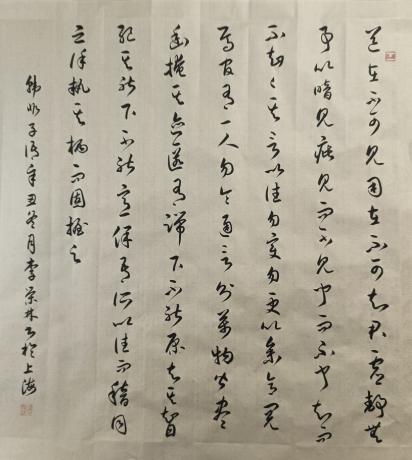 道在不可見用在不可知君虛靜無
事以暗見疵見而不見聞而不聞知而
不知知其言以往勿變勿更以參合閱
焉官有一人勿令通言則萬物皆盡
函掩其跡匿有端下不能原去其智
絕其能下不能意保吾所以往而稽同
之謹執其柄而固握之
韓非子語辛丑冬月李榮林書於上海